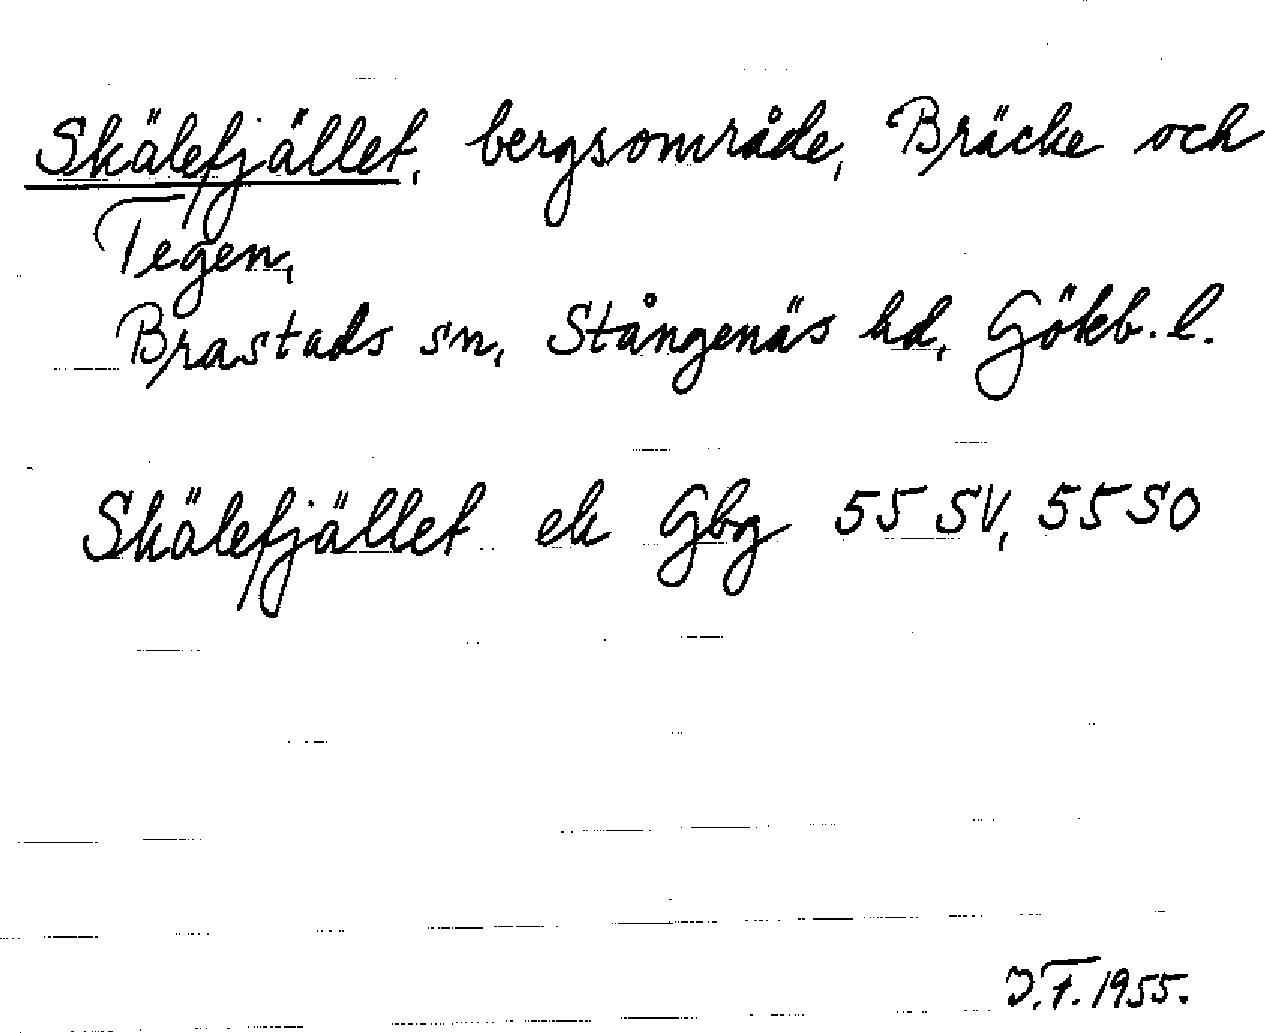 Skälefjället, bergsområde, Bräcke och
Tegen,
Brastads sn, Stångenäs hd, Gökb. l.
Skälefjället ek Gbg 55 SV, 55 SO
J.F. 1955.